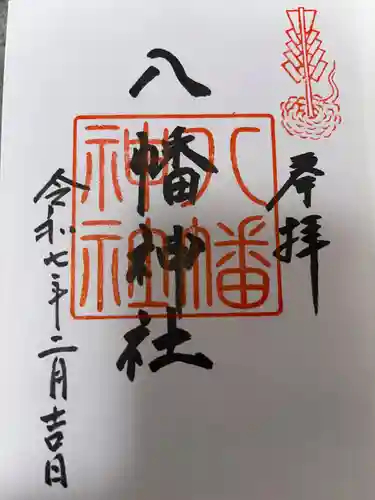 奉拝
八幡神社
八幡神社
令和七年二月吉日